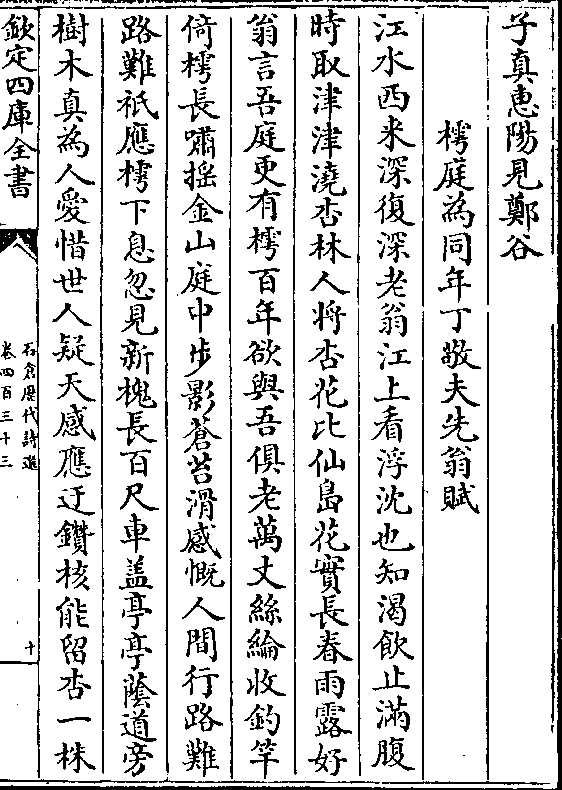 子真惠陽見鄭谷
樗庭為同年丁敬夫先翁賦
江水西来深復深老翁江上看浮沈也知渴飲止滿腹
時取津津澆杏林人將杏花比仙島花實長春雨露好
翁言吾庭更有樗百年欲與吾俱老萬丈絲綸收釣竿
倚樗長嘯揺金山庭中步影蒼苔滑感慨人間行路難
路難祇應樗下息忽見新槐長百尺車蓋亭亭蔭道旁
樹木真為人愛惜世人疑天感應迂鑽核能留杏一株
欽定四庫全書
石倉歴代詩選
卷四百三十三
十